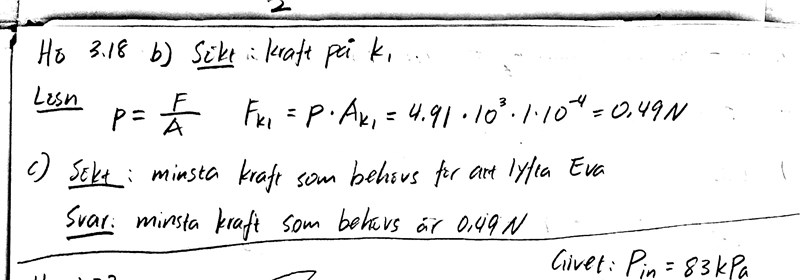 2
Hö 3.18 b) Sökt : kraft på k₁
Lösn p = F/A Fk₁ = p · Ak₁ = 4.91 · 10³ · 1 · 10⁻⁴ = 0.49 N
c) Sökt : minsta kraft som behövs för att lyfta Eva
Svar: minsta kraft som behövs är 0,49 N
Givet: Pin = 83 kPa